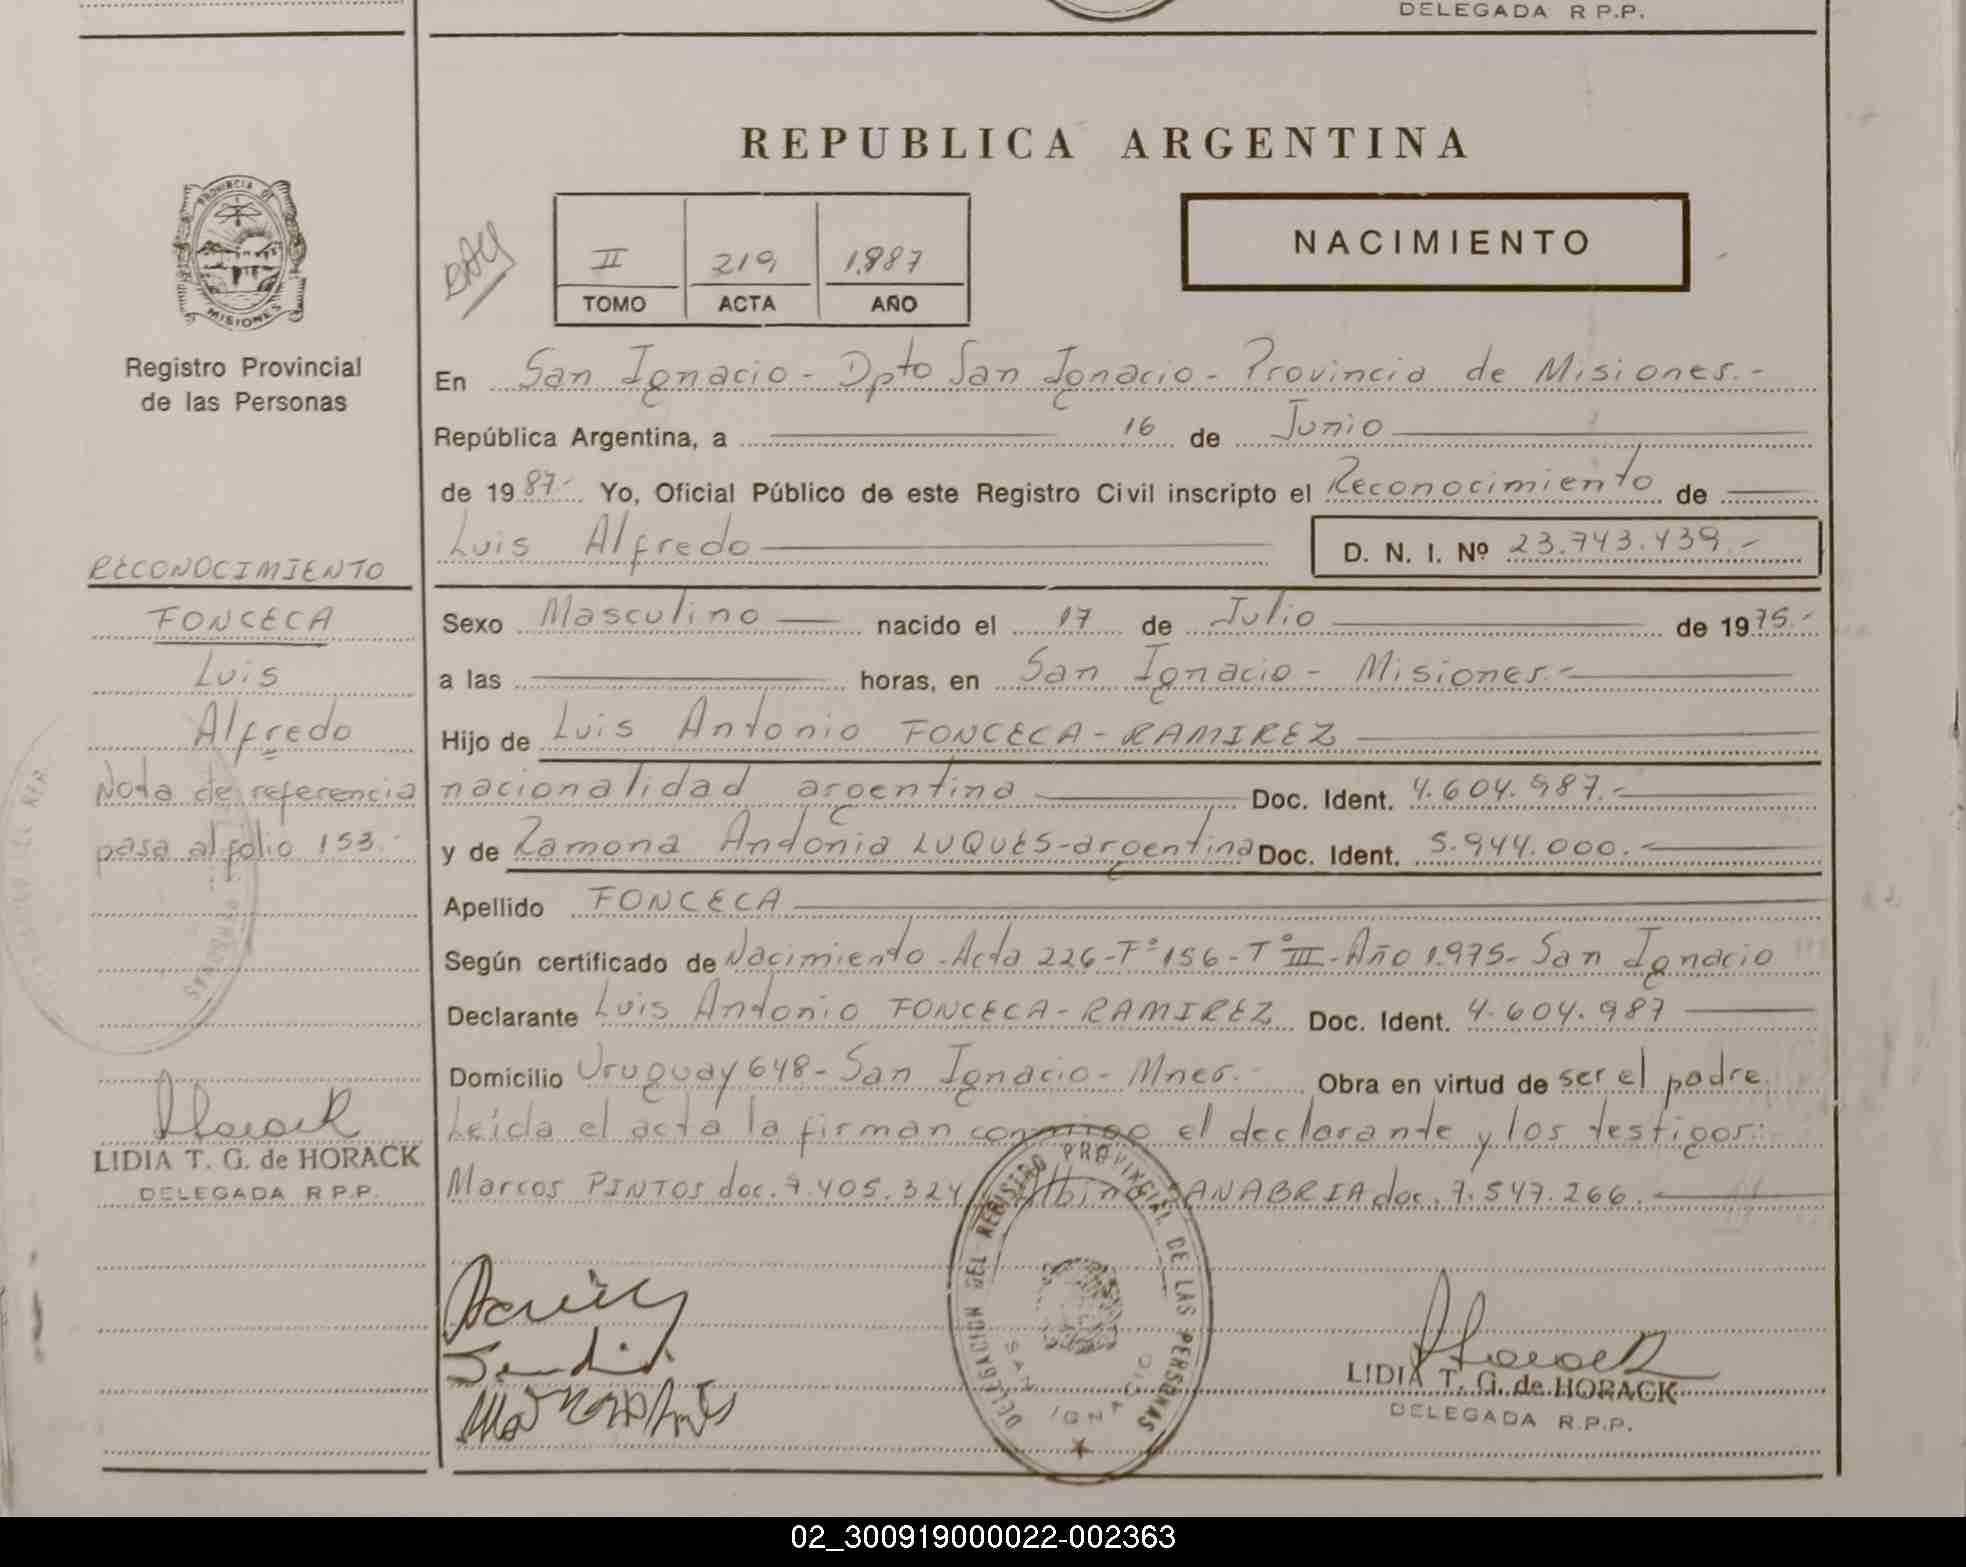 DELEGADA R P.P.
REPUBLICA ARGENTINA
PROVINCIA DE
MISIONES
Registro Provincial
de las Personas
II 219 1.987
TOMO ACTA AÑO
NACIMIENTO
En San Ignacio - Dpto San Ignacio - Provincia de Misiones.-
República Argentina, a 16 de Junio
de 1987.- Yo, Oficial Público de este Registro Civil inscripto el Reconocimiento de
Luis Alfredo D. N. I. Nº 23.743.439.-
RECONOCIMIENTO
FONCECA
Luis
Alfredo
Nota de referencia
pasa al folio 153.-
LIDIA T. G. de HORACK
DELEGADA R P.P.
Sexo Masculino nacido el 17 de Julio de 1975.-
a las horas, en San Ignacio - Misiones.-
Hijo de Luis Antonio FONCECA - RAMIREZ
nacionalidad argentina Doc. Ident. 4.604.987.-
y de Ramona Antonia LUQUES - argentina Doc. Ident. 5.944.000.-
Apellido FONCECA
Según certificado de Nacimiento - Acta 226 - Fº 156 - Tº III - Año 1.975 - San Ignacio
Declarante Luis Antonio FONCECA - RAMIREZ Doc. Ident. 4.604.987
Domicilio Uruguay 648 - San Ignacio - Mnes.- Obra en virtud de ser el padre.
Leída el acta la firman conmigo el declarante y los testigos:
Marcos PINTOS doc. 7.405.324 Albino SANABRIA doc. 7.547.266.
DELEGACION DEL REGISTRO PROVINCIAL DE LAS PERSONAS
SAN IGNACIO
LIDIA T. G. de HORACK
DELEGADA R.P.P.
02_300919000022-002363